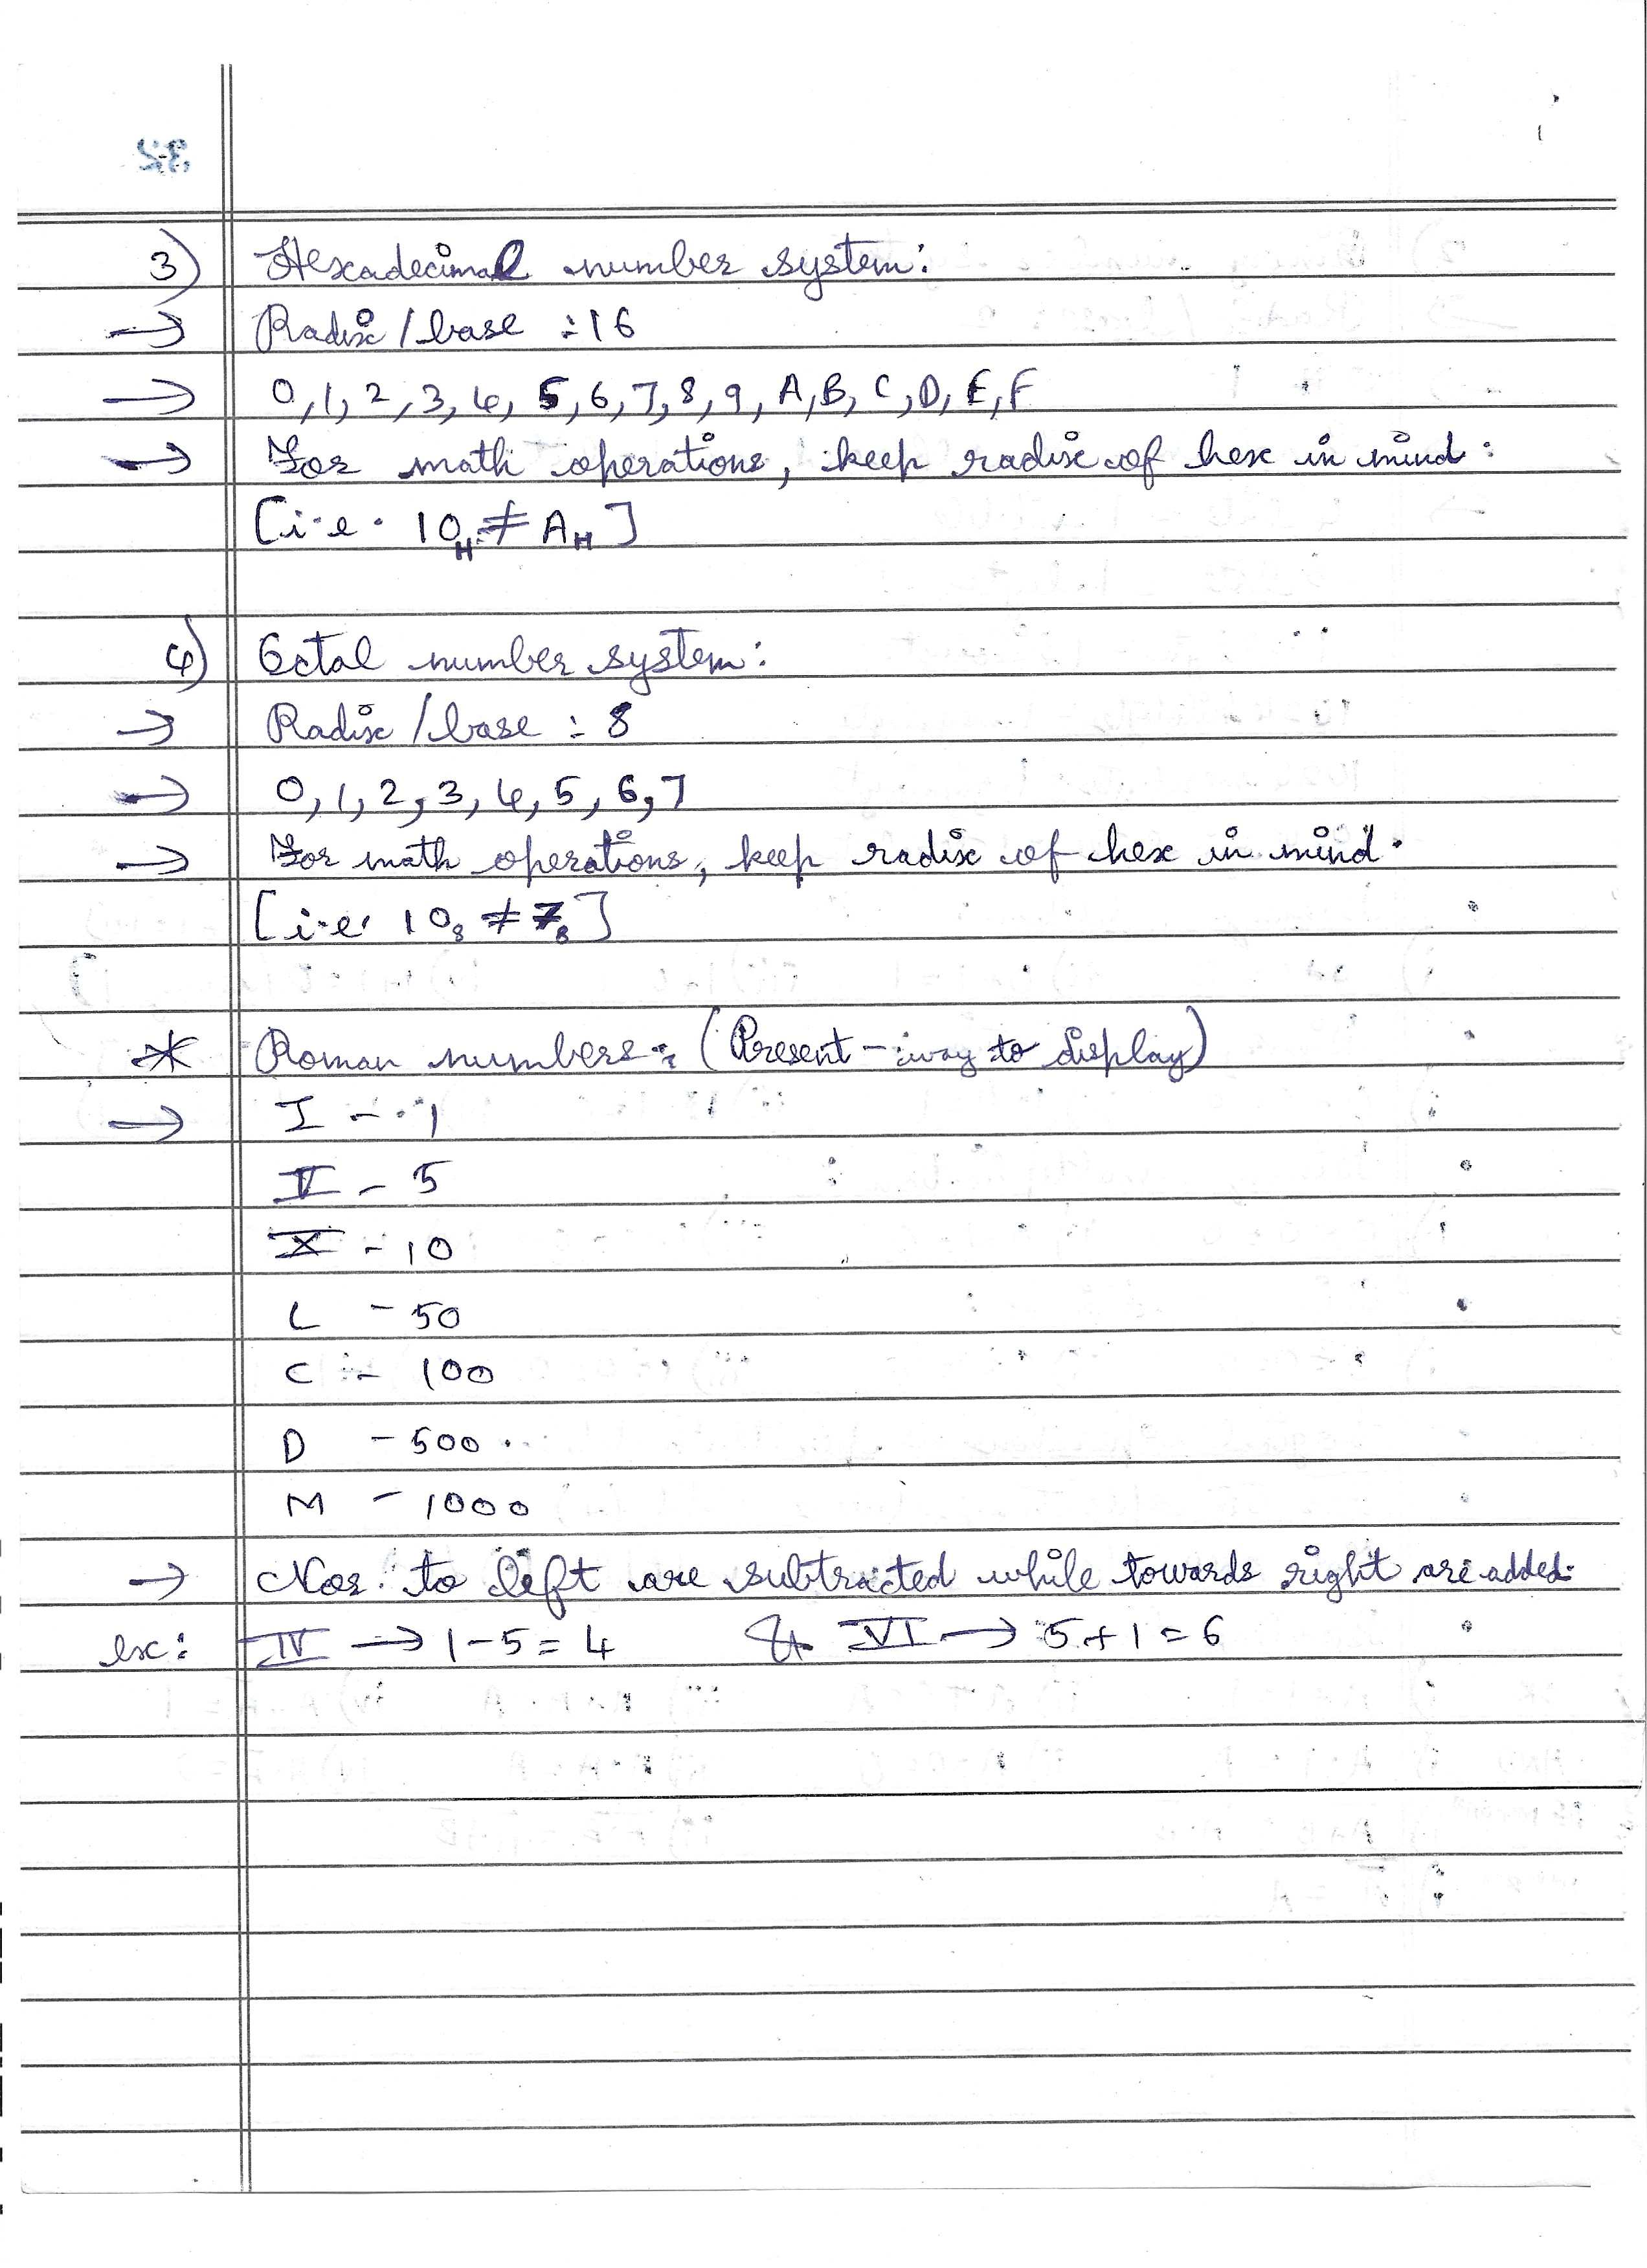 3) Hexadecimal number system:
→ Radix / base : 16
→ 0, 1, 2, 3, 4, 5, 6, 7, 8, 9, A, B, C, D, E, F
→ For math operations, keep radix of hex in mind :
[i.e. 10H ≠ AH]
4) Octal number system:
→ Radix / base : 8
→ 0, 1, 2, 3, 4, 5, 6, 7
→ For math operations, keep radix of hex in mind.
[i.e. 10₈ ≠ 7₈]
* Roman numbers : (Present - way to display)
→ I - 1
V - 5
X - 10
L - 50
C - 100
D - 500
M - 1000
→ Nos. to left are subtracted while towards right are added.
ex: IV → 1-5 = 4 & VI → 5+1 = 6